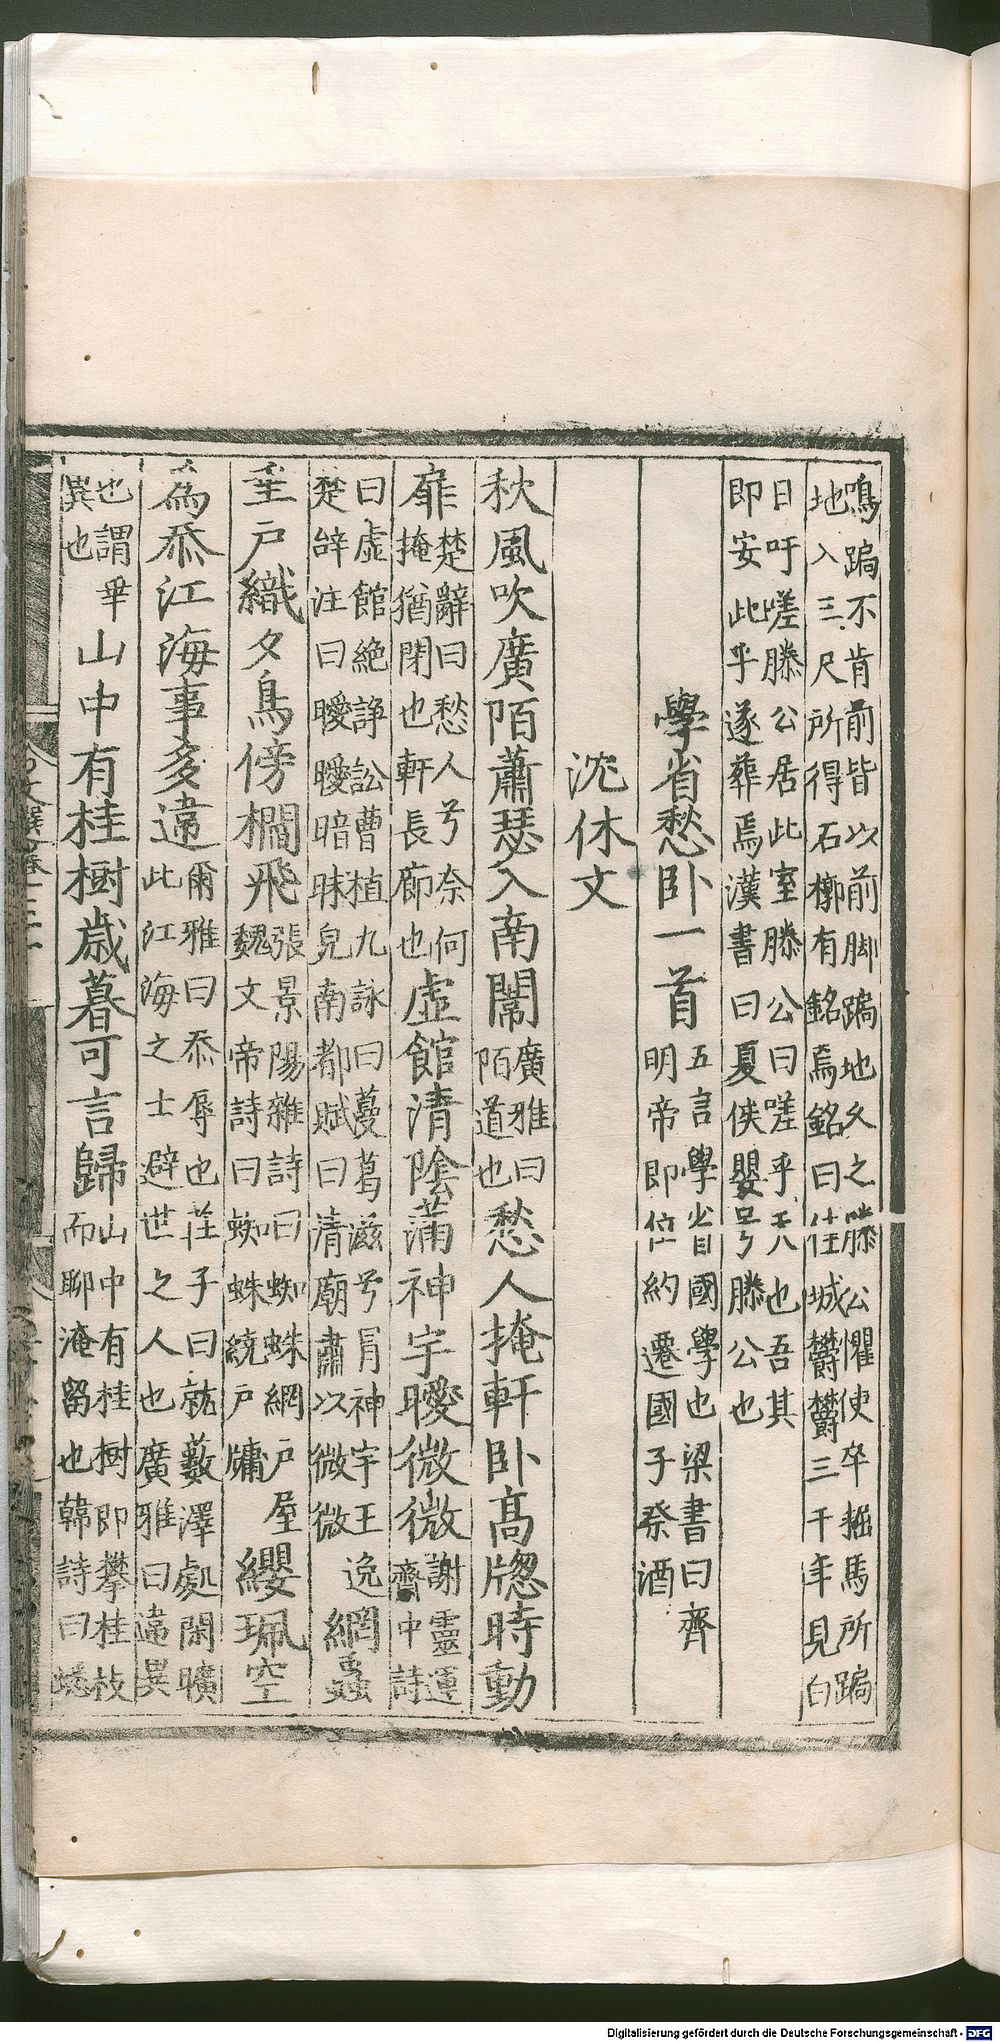 鳴跼不肯前皆以前脚跼地久之滕公懼使卒掘馬所跼
地入三尺所得石槨有銘焉銘曰佳城鬱鬱三千年見白
日吁嗟滕公居此室滕公曰嗟乎天也吾其
即安此乎遂葬焉漢書曰夏侯嬰号滕公也
學省愁卧一首
五言學省國學也梁書曰齊
明帝即位約遷國子祭酒
沈休文
秋風吹廣陌蕭瑟入南闈
廣雅曰
陌道也
愁人掩軒卧高牎時動
扉
楚辭曰愁人兮奈何
掩猶閉也軒長廊也
虛館清陰滿神宇曖微微
謝靈運
齋中詩
曰虛館絶諍訟曹植九詠曰蔓葛滋兮冐神宇王逸
楚辞注曰曖曖暗昧皃南都賦曰清廟肅以微微
網蟲
垂戶織夕鳥傍櫩飛
張景陽雜詩曰蜘蛛網戶屋
魏文帝詩曰蜘蛛繞戶牖
纓珮空
爲忝江海事多違
爾雅曰忝辱也莊子曰就藪澤處閑曠
此江海之士避世之人也廣雅曰違異
也謂
異也
畢山中有桂樹歳暮可言歸
山中有桂樹即攀桂枝
而聊淹留也韓詩曰蟋